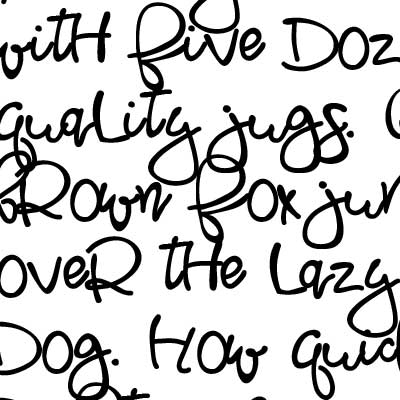 with five doz
quality jugs.
brown fox jum
over the lazy
dog. How quic